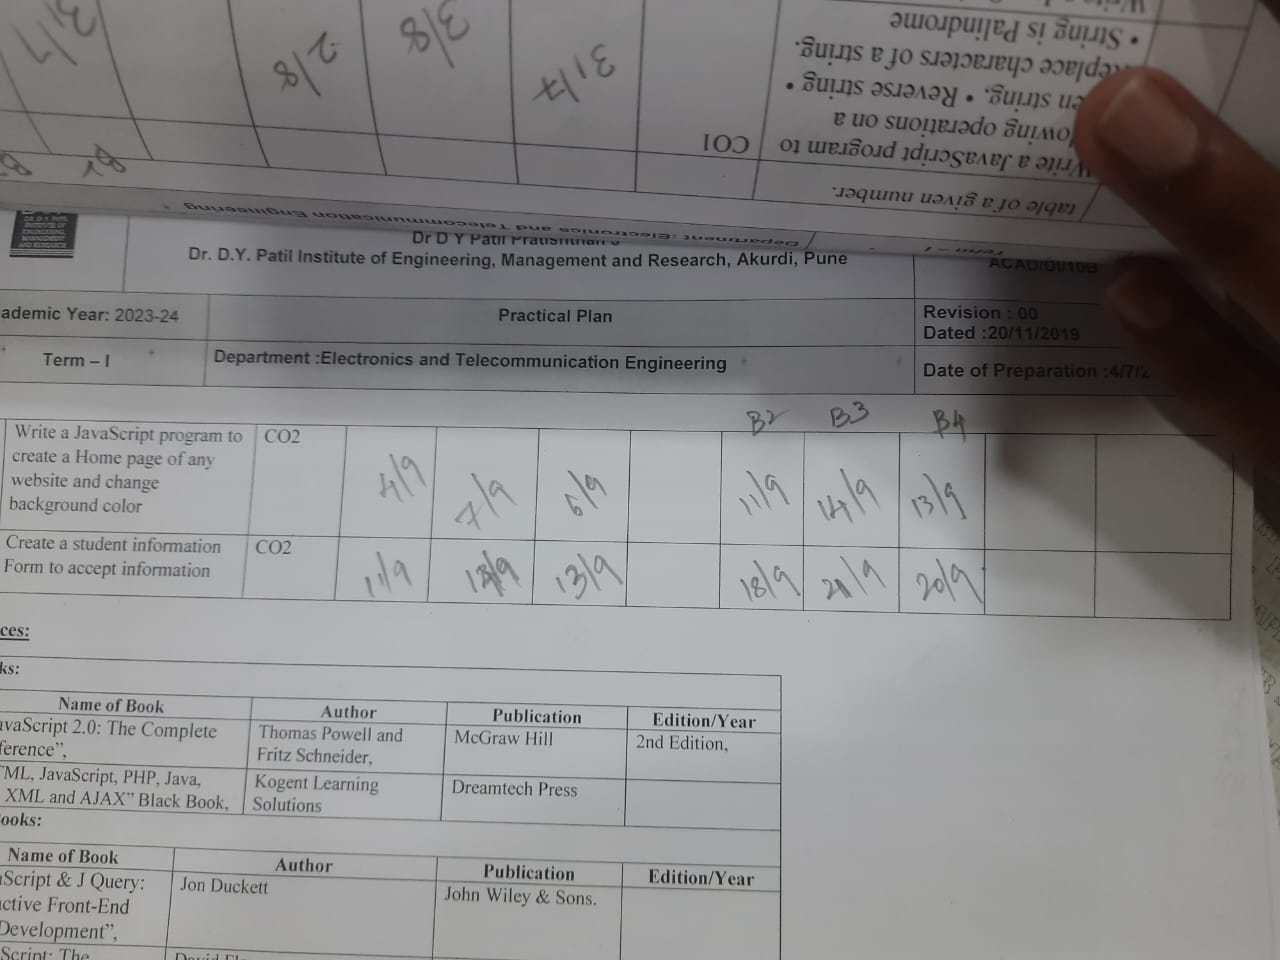 31/7
2/8
3/8
31/7
CO1
table of a given number.
Write a JavaScript program to
owing operations on a
en string. • Reverse string •
Replace characters of a string.
• String is Palindrome
Department :Electronics and Telecommunication Engineering
Term – I
Dr D Y Patil Pratishthan's
Dr. D.Y. Patil Institute of Engineering, Management and Research, Akurdi, Pune
ACAD/DI/10B
ademic Year: 2023-24
Practical Plan
Revision : 00
Dated :20/11/2019
Term – I
Department :Electronics and Telecommunication Engineering
Date of Preparation :4/7/2
B2 B3 B4
Write a JavaScript program to
create a Home page of any
website and change
background color
CO2
4/9 7/9 6/9 11/9 14/9 13/9
Create a student information
Form to accept information
CO2
11/9 13/9 18/9 20/9
ces:
ks:
Name of Book Author Publication Edition/Year
avaScript 2.0: The Complete
ference”,
Thomas Powell and
Fritz Schneider,
McGraw Hill
2nd Edition,
TML, JavaScript, PHP, Java,
XML and AJAX” Black Book,
Kogent Learning
Solutions
Dreamtech Press
ooks:
Name of Book Author Publication Edition/Year
aScript & J Query:
active Front-End
Development”,
Jon Duckett
John Wiley & Sons.
Script: The